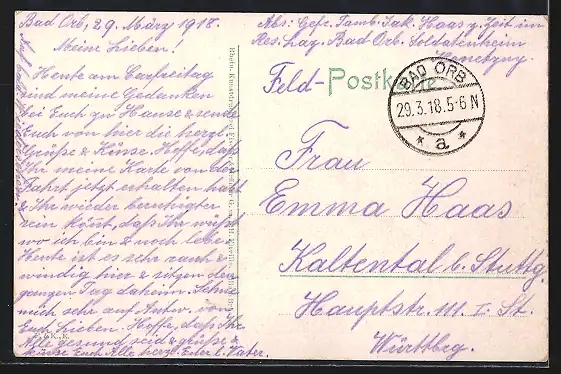 Bad Orb, 29. März 1918.
Meine Lieben!
Heute am Carfreitag
sind meine Gedanken
bei Euch zu Hause & sende
Euch von hier die herzl.
Grüße & Küsse. Hoffe, daß
Ihr meine Karte von der
Fahrt jetzt erhalten habt
& Ihr wieder beruhigter
sein könt, daß Ihr wüßt
wo ich bin & noch lebe.
Heute ist es sehr rauh &
windig hier & sitzen den
ganzen Tag daheim. Sehne
mich sehr auf Antw. von
Euch Lieben. Hoffe, daß Ihr
Alle gesund seid & grüße &
küsse Euch Alle herzl. Euer l. Vater.
Abs: Gefr. Tamb. Jak. Haas z. Zeit im
Res. Laz. Bad Orb. Soldatenheim
Feld-Postkarte
BAD ORB
29.3.18.5-6N
* a *
Frau
Emma Haas
Kaltental b. Stuttg.
Hauptstr. 111 I. St.
Württbrg.